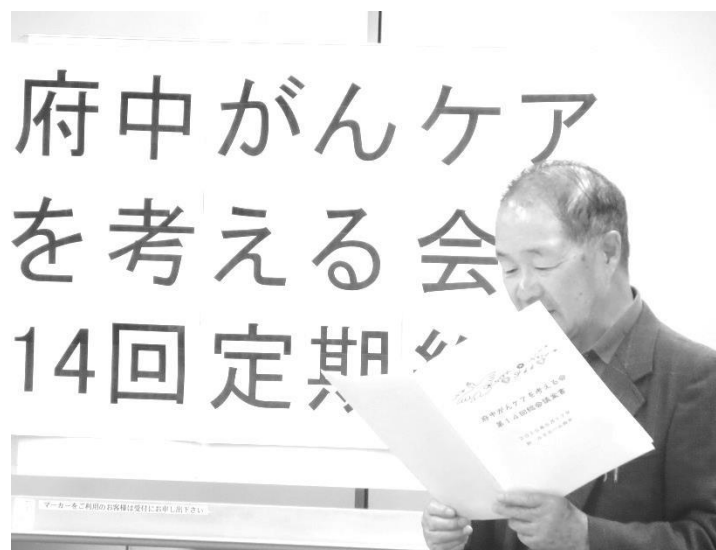 府中がんケア
を考える会
14回定期
府中がんケアを考える会
第14回総会議案書
マーカーをご利用のお客様は受付にお申し出下さい